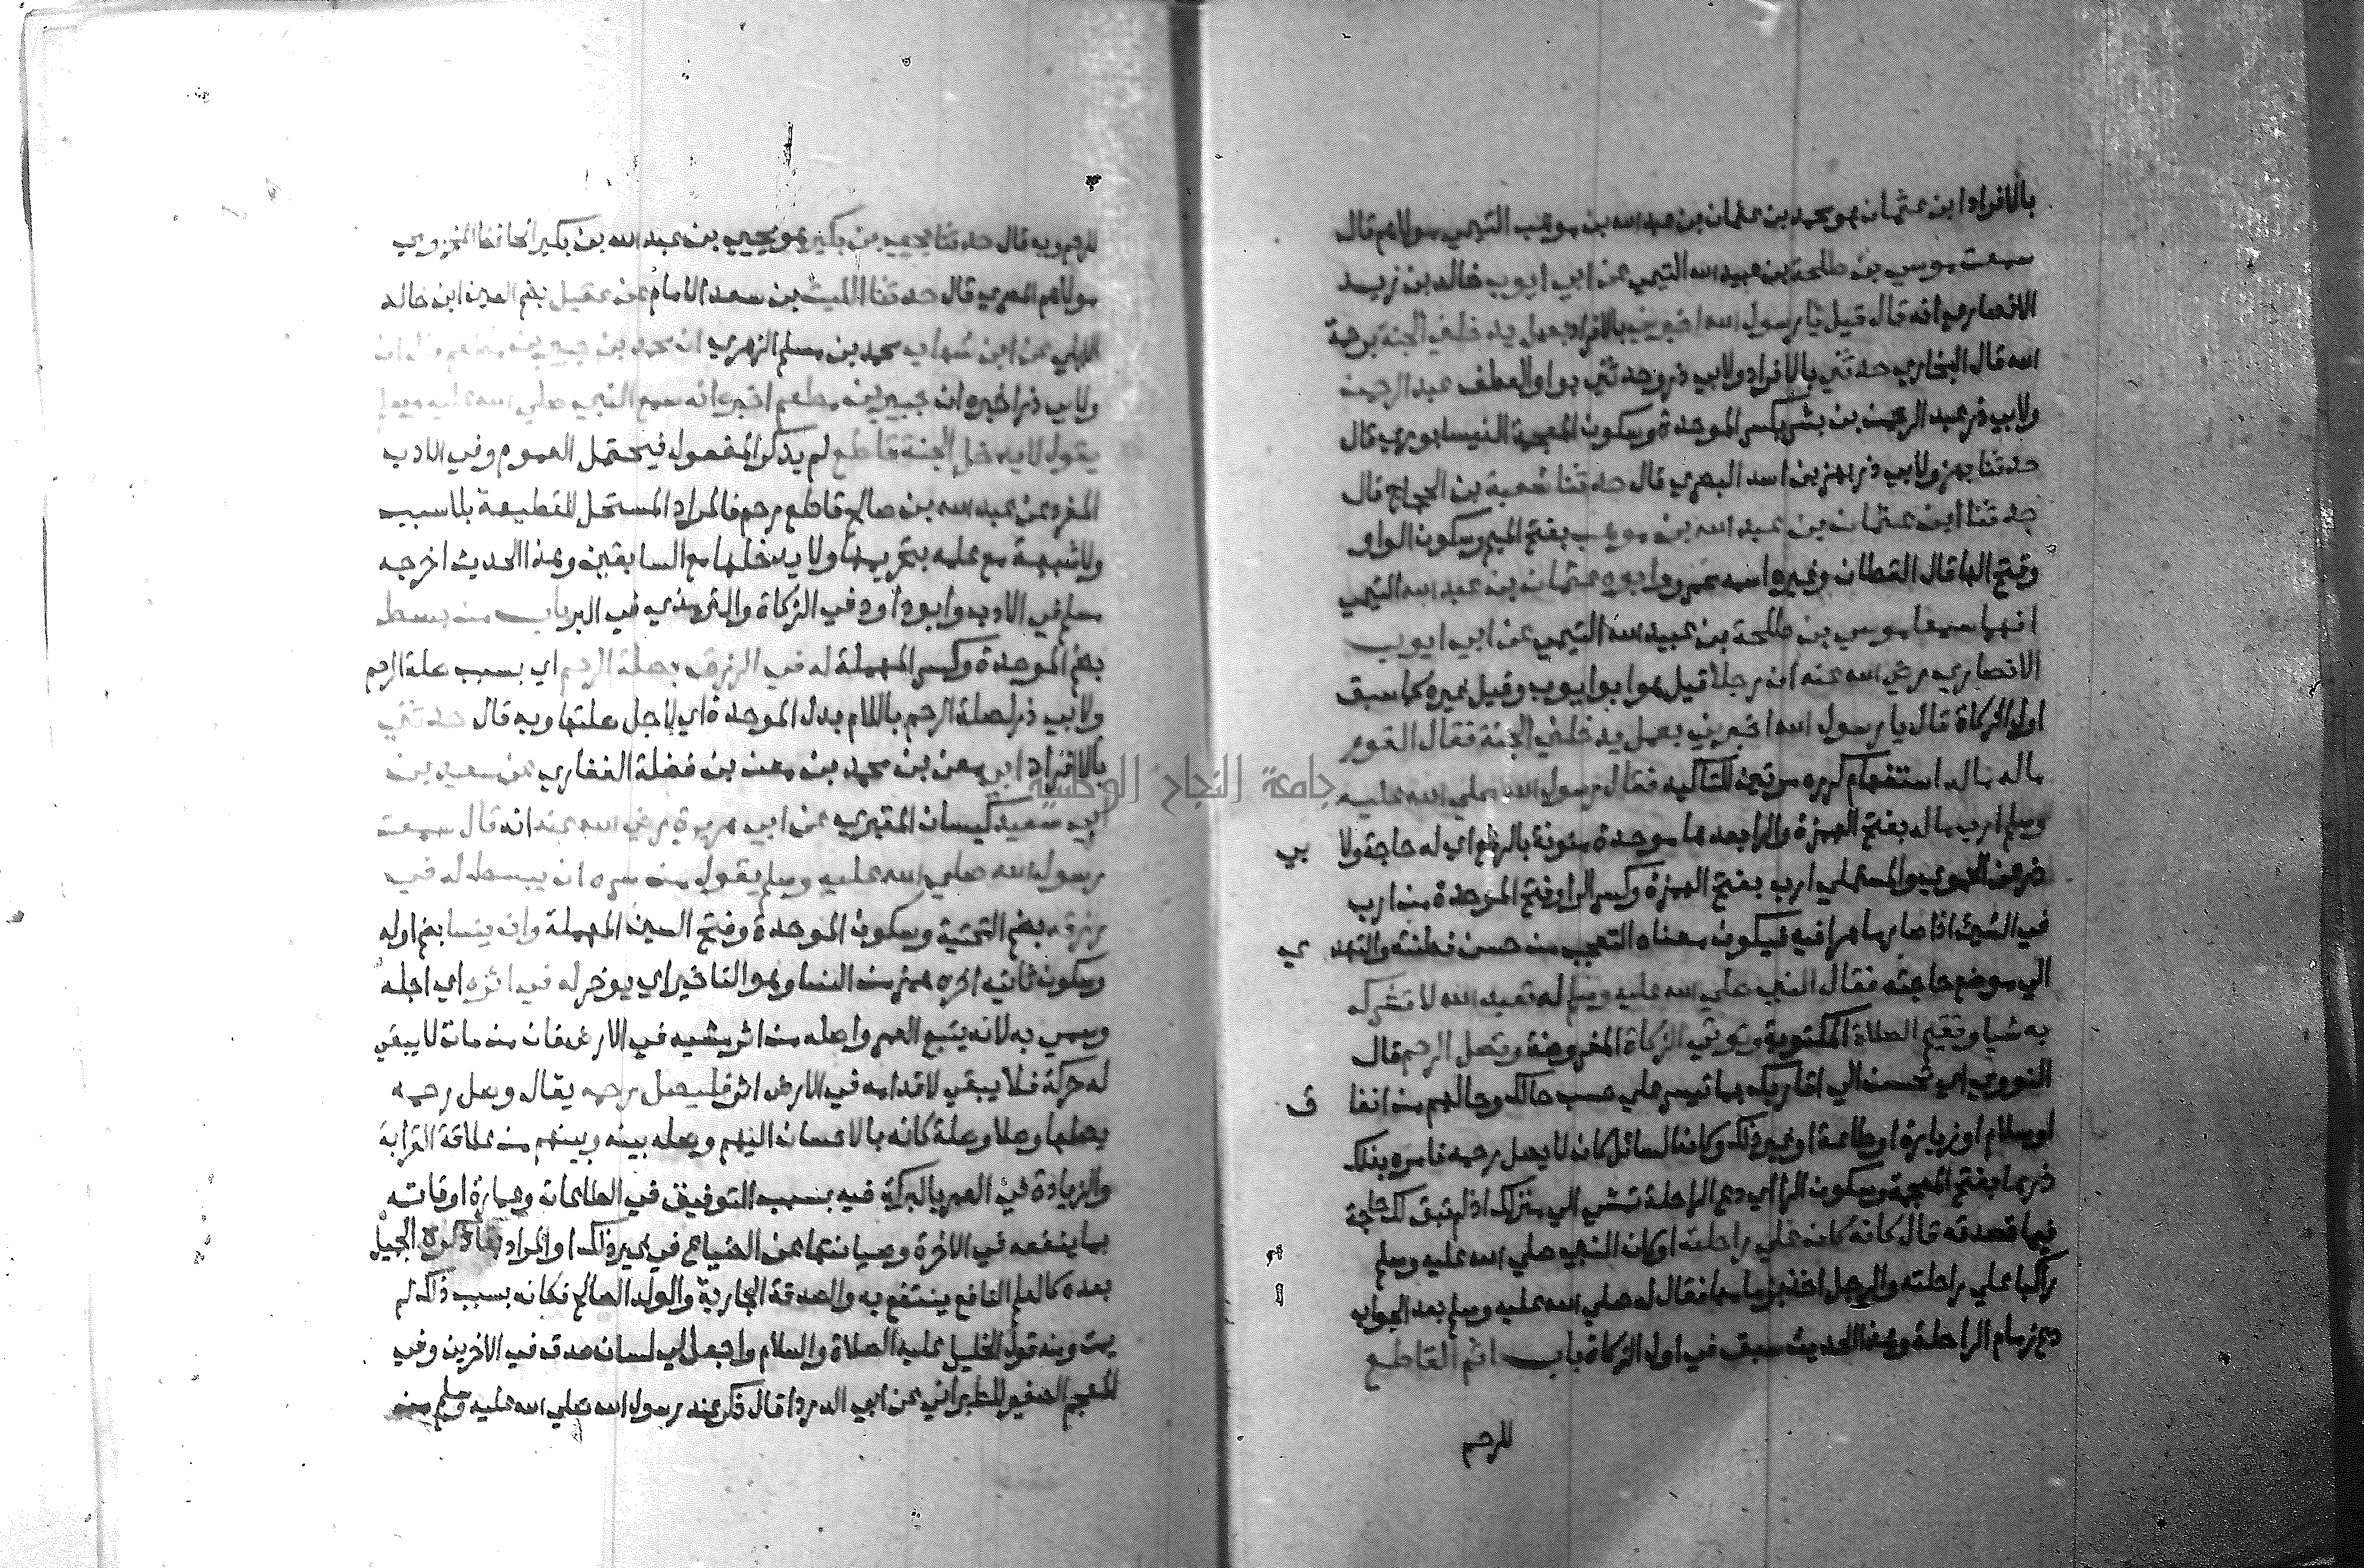 بالافراد ابن عثمان هو محمد بن عثمان بن عبد الله بن موهب التيمي مولاهم قال
سمعت موسي بن طلحة بن عبيد الله التيمي عن ابي ايوب خالد بن زيد
الانصاري انه قال قيل يا رسول الله اخبرني بالافراد بعمل يدخلني الجنة برحمة
الله قال البخاري حدثني بالافراد ولابي ذر وحدثني بواو العطف عبد الرحمن
ولابي ذر عبد الرحمن بن بشر بكسر الموحدة وسكون المعجمة النيسابوري قال
حدثنا بهز ولابي ذر بهز بن اسد البصري قال حدثنا شعبة بن الحجاج قال
حدثنا ابن عثمان بن عبد الله بن موهب بفتح الميم وسكون الواو
وفتح الها قال القطان وغيره اسمه عمرو وابوه عثمان بن عبد الله التيمي
انهما سمعا موسي بن طلحة بن عبيد الله التيمي عن ابي ايوب
الانصاري رضي الله عنه ان رجلا قيل هو ابو ايوب وقيل غيره كما سبق
اول الزكاة قال يا رسول الله اخبرني بعمل يدخلني الجنة فقال القوم
ماله ماله استفهام كرره مرتين للتاكيد فقال رسول الله صلي الله عليه
وسلم ارب ماله بفتح الهمزة والرا بعدها موحدة منونة بالرفع اي له حاجة ولا بي
ذر عن الحموي والمستملي ارب بفتح الهمزة وكسر الرا وفتح الموحدة من ارب
في الشيئ اذا صار ماهرا فيه فيكون معناه التعجب من حسن فطنته والتهد ي
الي موضع حاجته فقال النبي صلي الله عليه وسلم له تعبد الله لا تشرك
به شيا وتقيم الصلاة المكتوبة وتوتي الزكاة المفروضة وتصل الرحم قال
النووي اي تحسن الي اقاربك بما تيسر علي حسب حالك وحالهم من انفا ق
او سلام او زيارة او طاعة او غير ذلك وكان السائل كان لا يصل رحمه فامره بذلك
ذرها بفتح المعجمة وسكون الرا اي دع الراحلة تمشي الي منزلك اذ لم تبق لك حاجة
فيما قصدته قال كانه كان علي راحلته او كان النبي صلي الله عليه وسلم
راكبا علي راحلته والرجل اخذ بزمامها فقال له صلي الله عليه وسلم بعد الجواب
دع زمام الراحلة وهذا الحديث سبق في اول الزكاة باب اثم القاطع
للرحم
للرحم وبه قال حدثنا يحيي بن بكير هو يحيي بن عبد الله بن بكير الحافظ المخزومي
مولاهم المصري قال حدثنا الليث بن سعد الامام عن عقيل بضم العين ابن خالد
الايلي عن ابن شهاب محمد بن مسلم الزهري ان محمد بن جبير بن مطعم قال ان
ولابي ذر اخبره ان جبير بن مطعم اخبره انه سمع النبي صلي الله عليه وسلم
يقول لا يدخل الجنة قاطع لم يذكر المفعول فيحتمل العموم وفي الادب
المفرد عن عبد الله بن صالح قاطع رحم فالمراد المستحل للقطيعة بلا سبب
ولا شبهة مع علمه بتحريمها ولا يدخلها مع السابقين وهذا الحديث اخرجه
مسلم في الادب وابو داود في الزكاة والترمذي في البر باب من بسط
بضم الموحدة وكسر المهملة له في الرزق بصلة الرحم اي بسبب صلة الرحم
ولابي ذر لصلة الرحم باللام بدل الموحدة اي لاجل صلتها وبه قال حدثني
بالافراد ابن معن بن محمد بن معن بن فضلة الغفاري عن سعيد بن
ابي سعيد كيسان المقبري عن ابي هريرة رضي الله عنه انه قال سمعت
رسول الله صلي الله عليه وسلم يقول من سره ان يبسط له في
رزقه بضم التحتية وسكون الموحدة وفتح السين المهملة وان ينسا بضم اوله
وسكون ثانيه اخره همز من النسا وهو التاخير اي يوخر له في اثره اي اجله
وسمي به لانه يتبع العمر واصله من اثر مشيه في الارض فان من مات لا يبقي
له حركة فلا يبقي لاقدامه في الارض اثر فليصل رحمه يقال وصل رحمه
يصلها وصلا وصلة كانه بالاحسان اليهم وصله بينه وبينهم من علاقة القرابة
والزيادة في العمر بالبركة فيه بسبب التوفيق في الطاعات وعمارة اوقاته
بما ينفعه في الاخرة وصيانتها عن الضياع في غير ذلك او المراد بقا ذكره الجميل
بعده كالعلم النافع ينتفع به والصدقة الجارية والولد الصالح فكانه بسبب ذلك لم
يمت ومنه قول الخليل عليه الصلاة والسلام واجعل لي لسان صدق في الاخرين وفي
المعجم الصغير للطبراني عن ابي الدردا قال ذكر عند رسول الله صلي الله عليه وسلم من
جامعة النجاح الوطنية